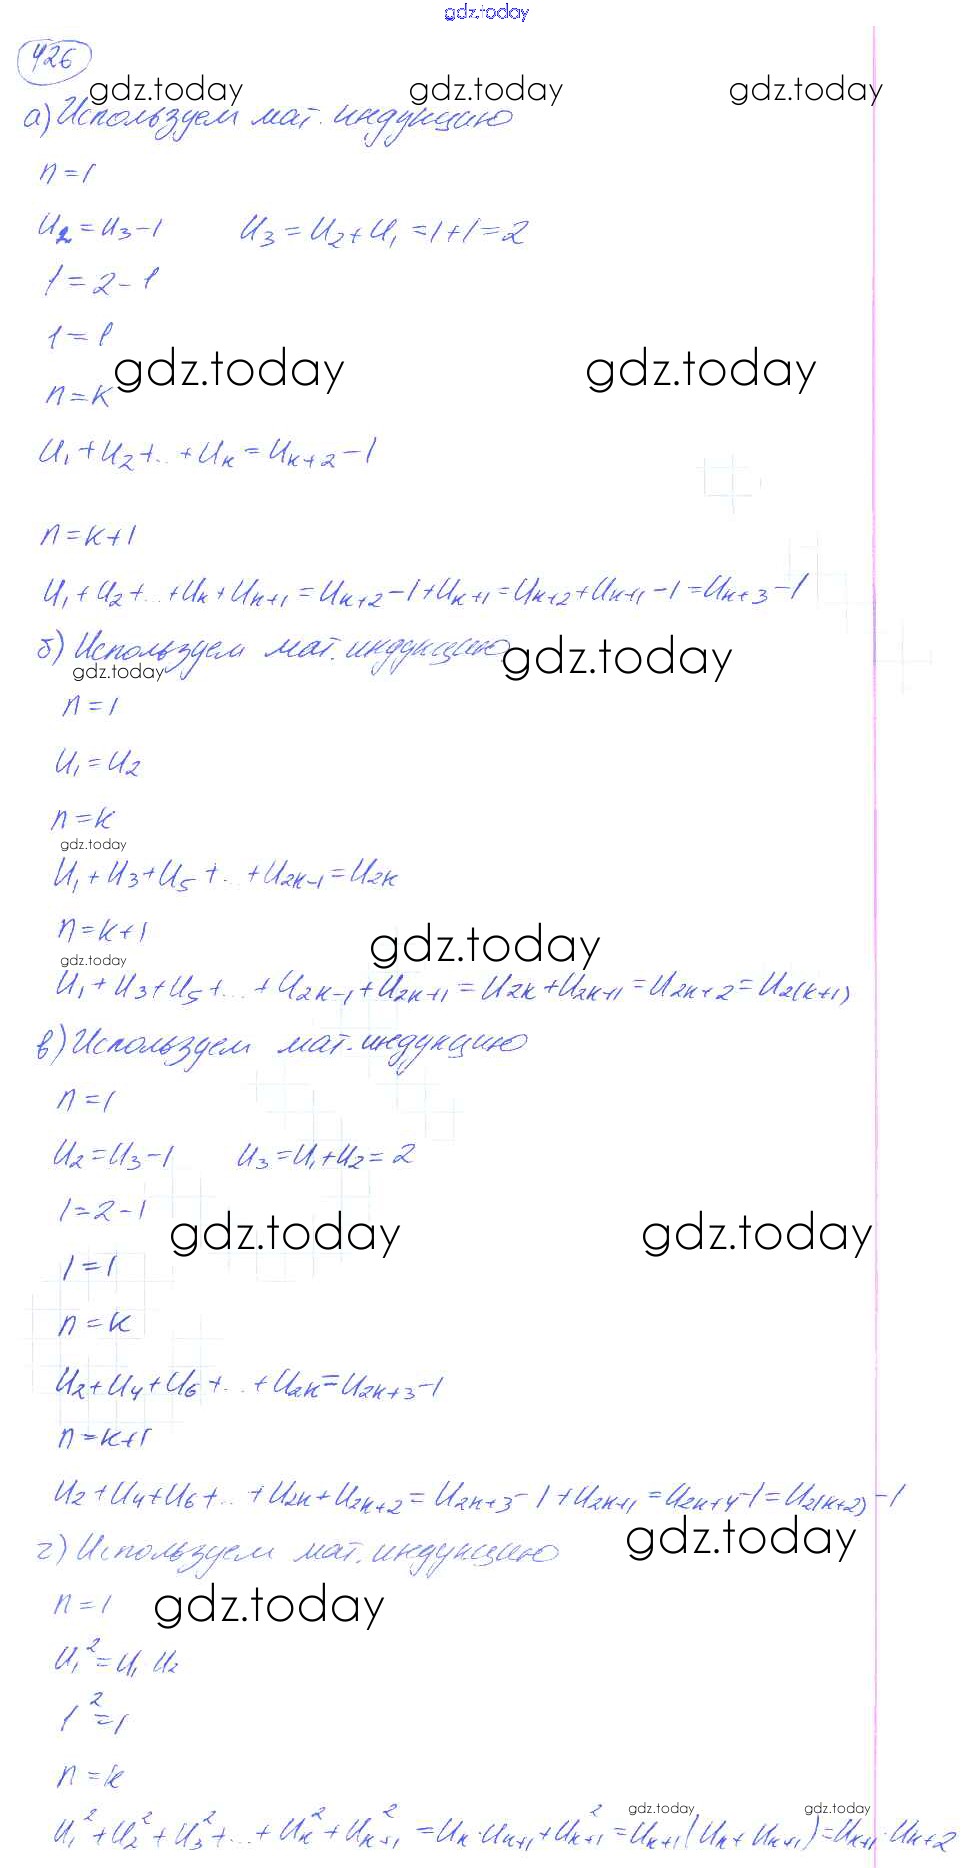 gdz.today
426
gdz.today gdz.today gdz.today
а) Используем мат. индукцию
n=1
U₂=U₃-1 U₃=U₂+U₁=1+1=2
1=2-1
1=1
gdz.today gdz.today
n=k
U₁+U₂+..+Uₖ=Uₖ₊₂-1
n=k+1
U₁+U₂+..+Uₖ+Uₖ₊₁=Uₖ₊₂-1+Uₖ₊₁=Uₖ₊₂+Uₖ₊₁-1=Uₖ₊₃-1
б) Используем мат. индукцию
gdz.today gdz.today
n=1
U₁=U₂
n=k
gdz.today
U₁+U₃+U₅+..+U₂ₖ₋₁=U₂ₖ
n=k+1
gdz.today gdz.today
U₁+U₃+U₅+..+U₂ₖ₋₁+U₂ₖ₊₁=U₂ₖ+U₂ₖ₊₁=U₂ₖ₊₂=U₂₍ₖ₊₁₎
в) Используем мат. индукцию
n=1
U₂=U₃-1 U₃=U₁+U₂=2
1=2-1
gdz.today gdz.today
1=1
n=k
U₂+U₄+U₆+..+U₂ₖ=U₂ₖ₊₃-1
n=k+1
U₂+U₄+U₆+..+U₂ₖ+U₂ₖ₊₂=U₂ₖ₊₃-1+U₂ₖ₊₁=U₂ₖ₊₄-1=U₂₍ₖ₊₂₎-1
gdz.today
г) Используем мат. индукцию
n=1
gdz.today
U₁²=U₁U₂
1²=1
n=k
gdz.today gdz.today
U₁²+U₂²+U₃²+..+Uₖ²+Uₖ₊₁²=Uₖ·Uₖ₊₁+Uₖ₊₁²=Uₖ₊₁(Uₖ+Uₖ₊₁)=Uₖ₊₁·Uₖ₊₂